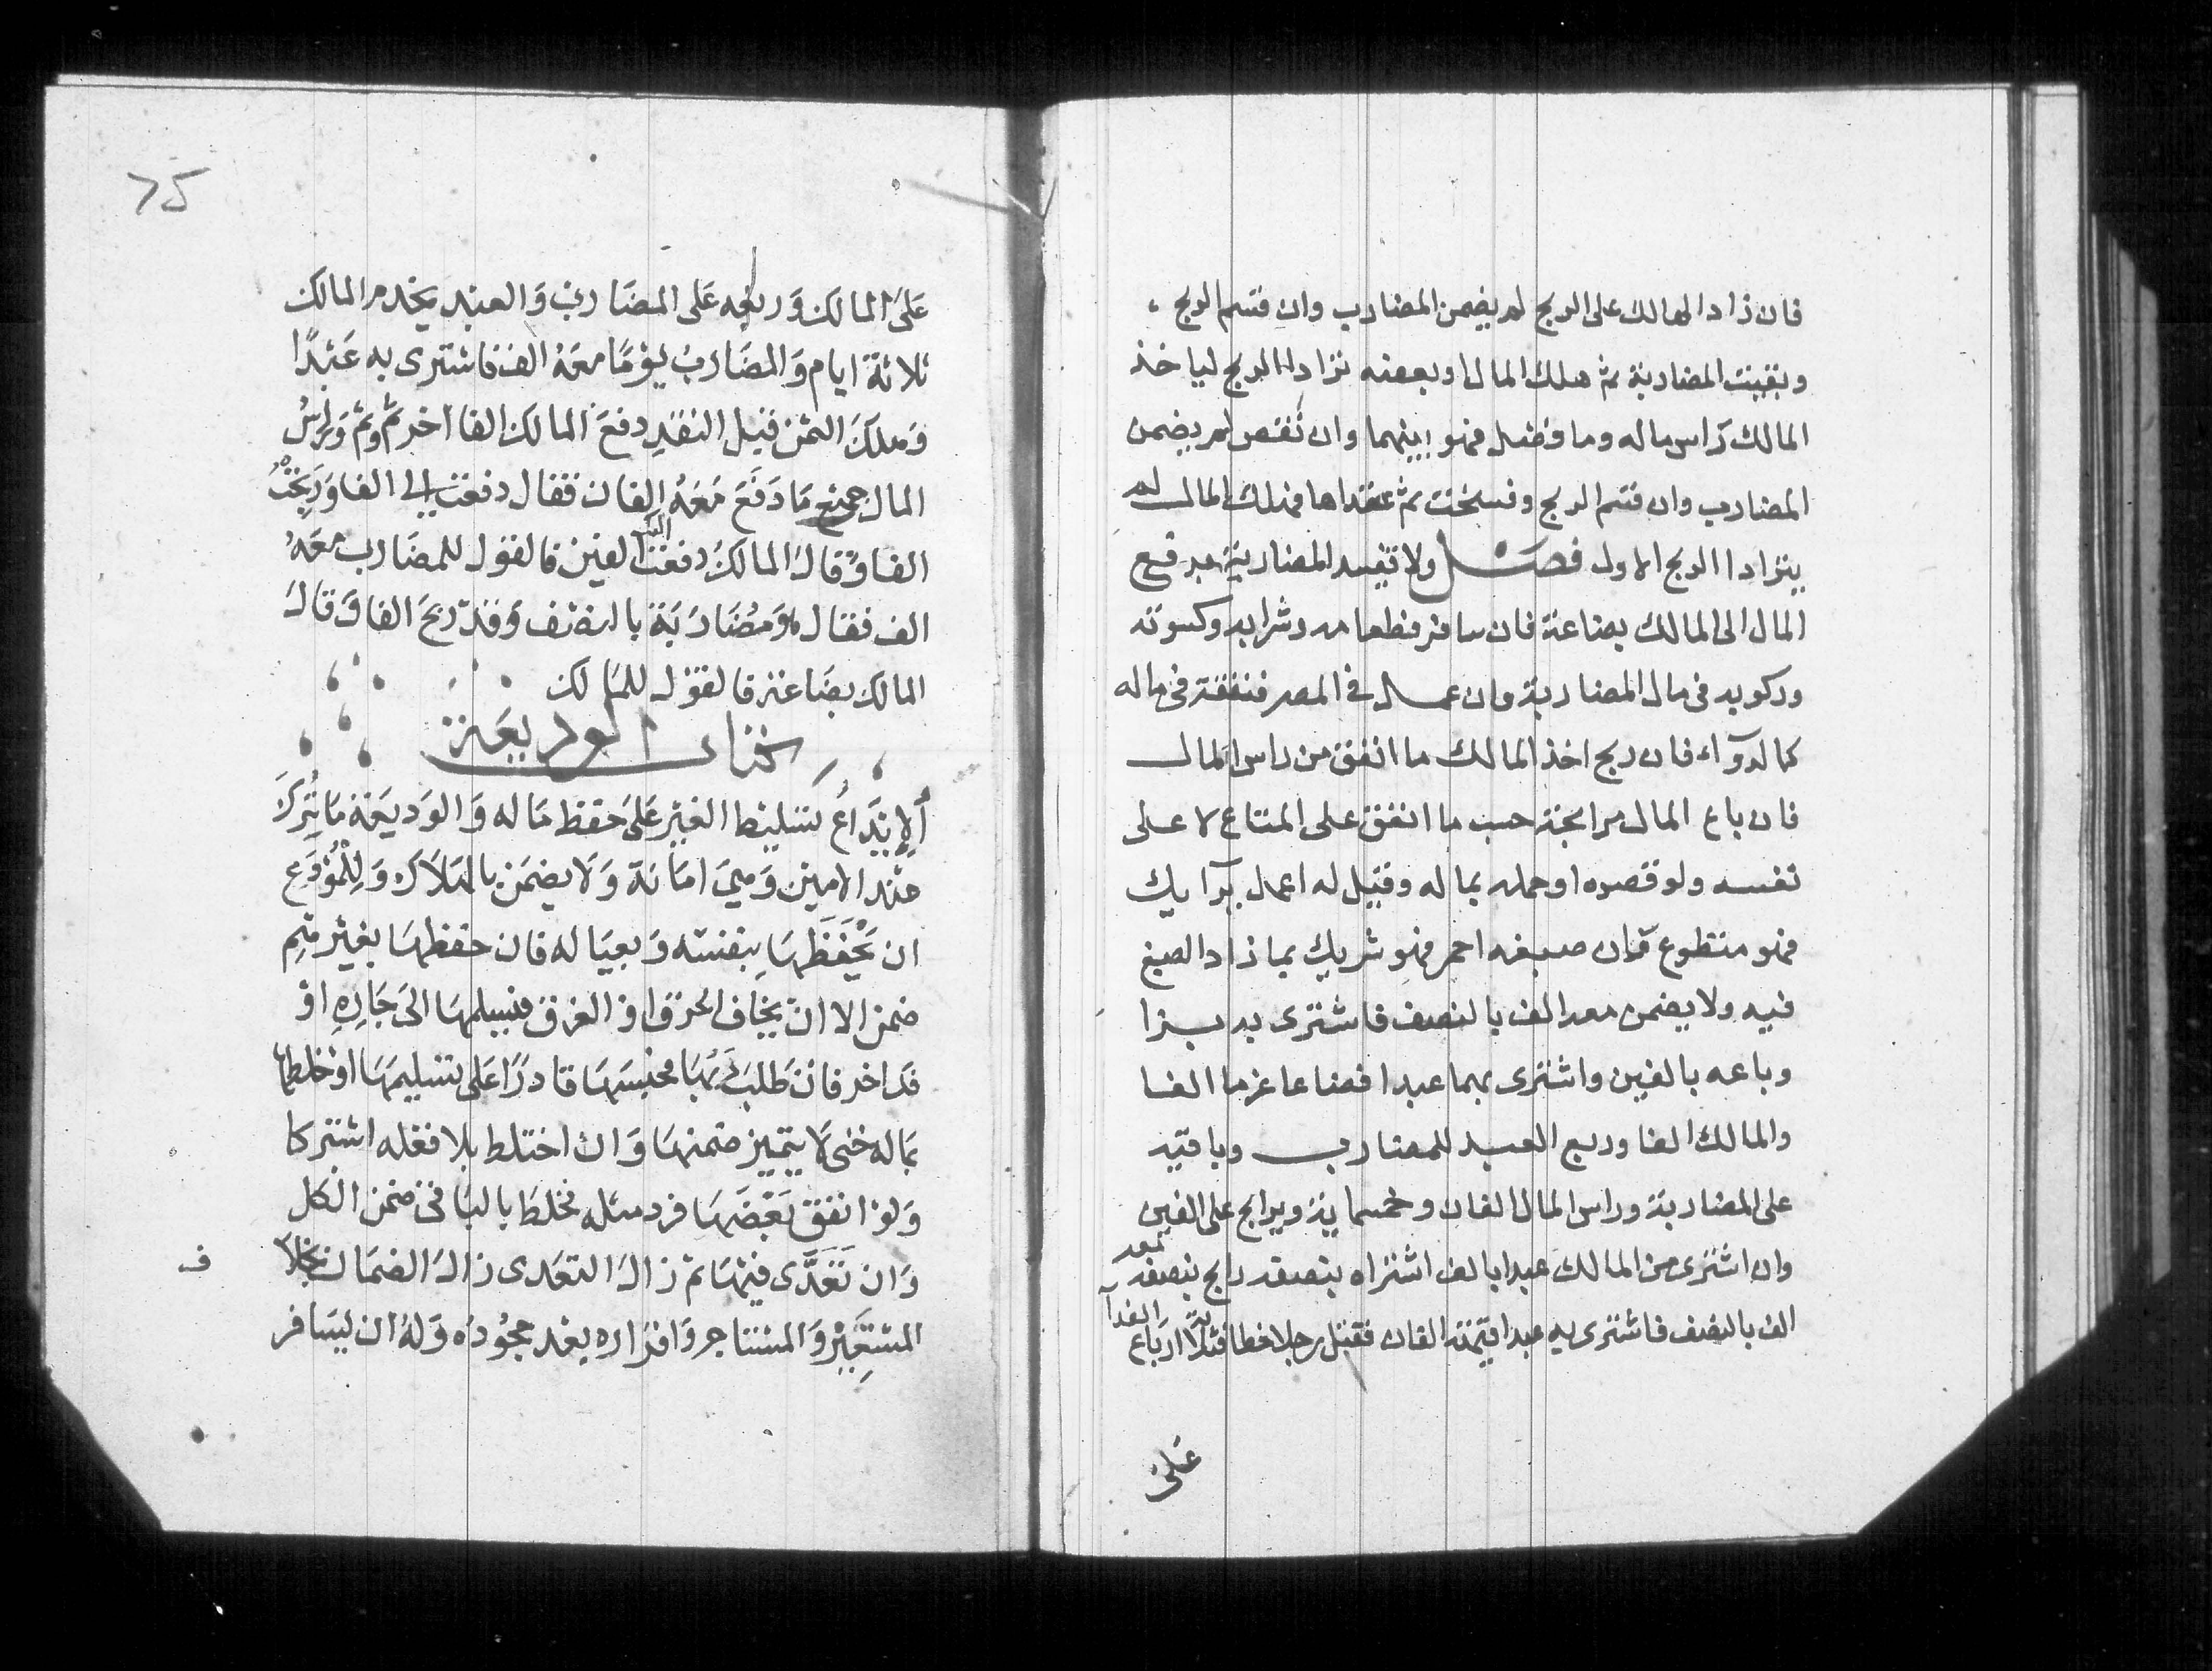 فان زاد الهالك على الربح لم يضمن المضارب وان قسم الربح
وبقيت المضاربة ثم هلك المال او بعضه ترادا الربح لياخذ
المالك راس ماله وما فضل فهو بينهما وان نقص لم يضمن
المضارب وان قسم الربح وفسخت ثم عقداها فهلك المال لم
يترادا الربح الاول فصل ولا تفسد المضاربة بدفع
المال الى المالك بضاعة فان سافر فطعامه وشرابه وكسوته
وركوبه في مال المضاربة وان عمل في المصر فنفقته في ماله
كالدوآء فان ربح اخذ المالك ما انفق من راس المال
فان باع المال مرابحة حسب ما انفق على المتاع لا على
نفسه ولو قصره او حمله بماله وقيل له اعمل برآيك
فهو متطوع وان صبغه احمر فهو شريك بما زاد الصبغ
فيه ولا يضمن معه الف بالنصف فاشترى به بزا
وباعه بالفين واشترى بهما عبدا فضاعا غرما الفا
والمالك الفا وربع العبد للمضارب وباقيه
على المضاربة وراس المال الفان وخمسماية ويرابح على الفين
وان اشترى من المالك عبدا بالف اشتراه بنصفه رابح بنصفه معه
الف بالنصف فاشترى به عبدا قيمته الفان فقتل رجلا خطا فثلاثة ارباع الفدآ
على
٧٥
على المالك وربعه على المضارب والعبد يخدم المالك
ثلاثة ايام والمضارب يوما معه الف فاشترى به عبدا
وهلك الثمن قبل النقد دفع المالك الفا اخر ثم وثم وراس
المال جميع ما دفع معه الفان فقال دفعت الي الفا وربحت
الفا وقال المالك دفعت اليك الفين فالقول للمضارب معه
الف فقال هو مضاربة بالنصف وقد ربح الفا وقال
المالك بضاعة فالقول للمالك
كتاب الوديعة
الايداع تسليط الغير على حفظ ماله والوديعة ما تترك
عند الامين وهي امانة ولا يضمن بالهلاك وللمودع
ان يحفظها بنفسه وبعياله فان حفظها بغيرهم
ضمن الا ان يخاف الحرق او الغرق فيسلمها الى جاره او
فلك اخر فان طلب ربها فحبسها قادرا على تسليمها او خلطها
بماله حتى لا يتميز ضمنها وان اختلط بلا فعله اشتركا
ولو انفق بعضها فرد مثله فخلط بالباقي ضمن الكل
وان تعدى فيها ثم زال التعدى زال الضمان بخلاف
المستعير والمستاجر واقراره بعد جحوده وله ان يسافر